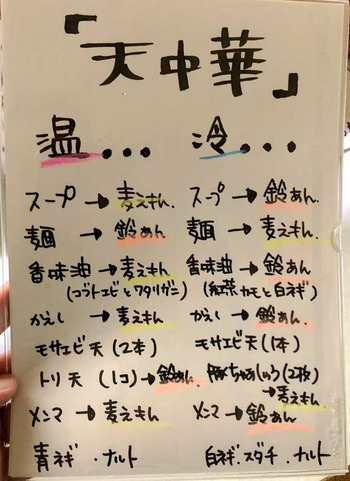 「天中華」
温...
スープ → 麦えもん.
麺 → 鈴あん
香味油 → 麦えもん
(コヅトエビとワタリガニ)
かえし → 麦えもん
モサエビ天(2本)
トリ天 (1コ) → 鈴あん
メンマ → 麦えもん
青ネギ ・ナルト
冷...
スープ → 鈴あん.
麺 → 麦えもん.
香味油 → 鈴あん
(紅茶カモと白ネギ)
かえし → 鈴あん.
モサエビ天(1本)
豚ちゃあしゅう(2枚)
→ 麦えもん
メンマ → 鈴あん
白ネギ.スダチ.ナルト